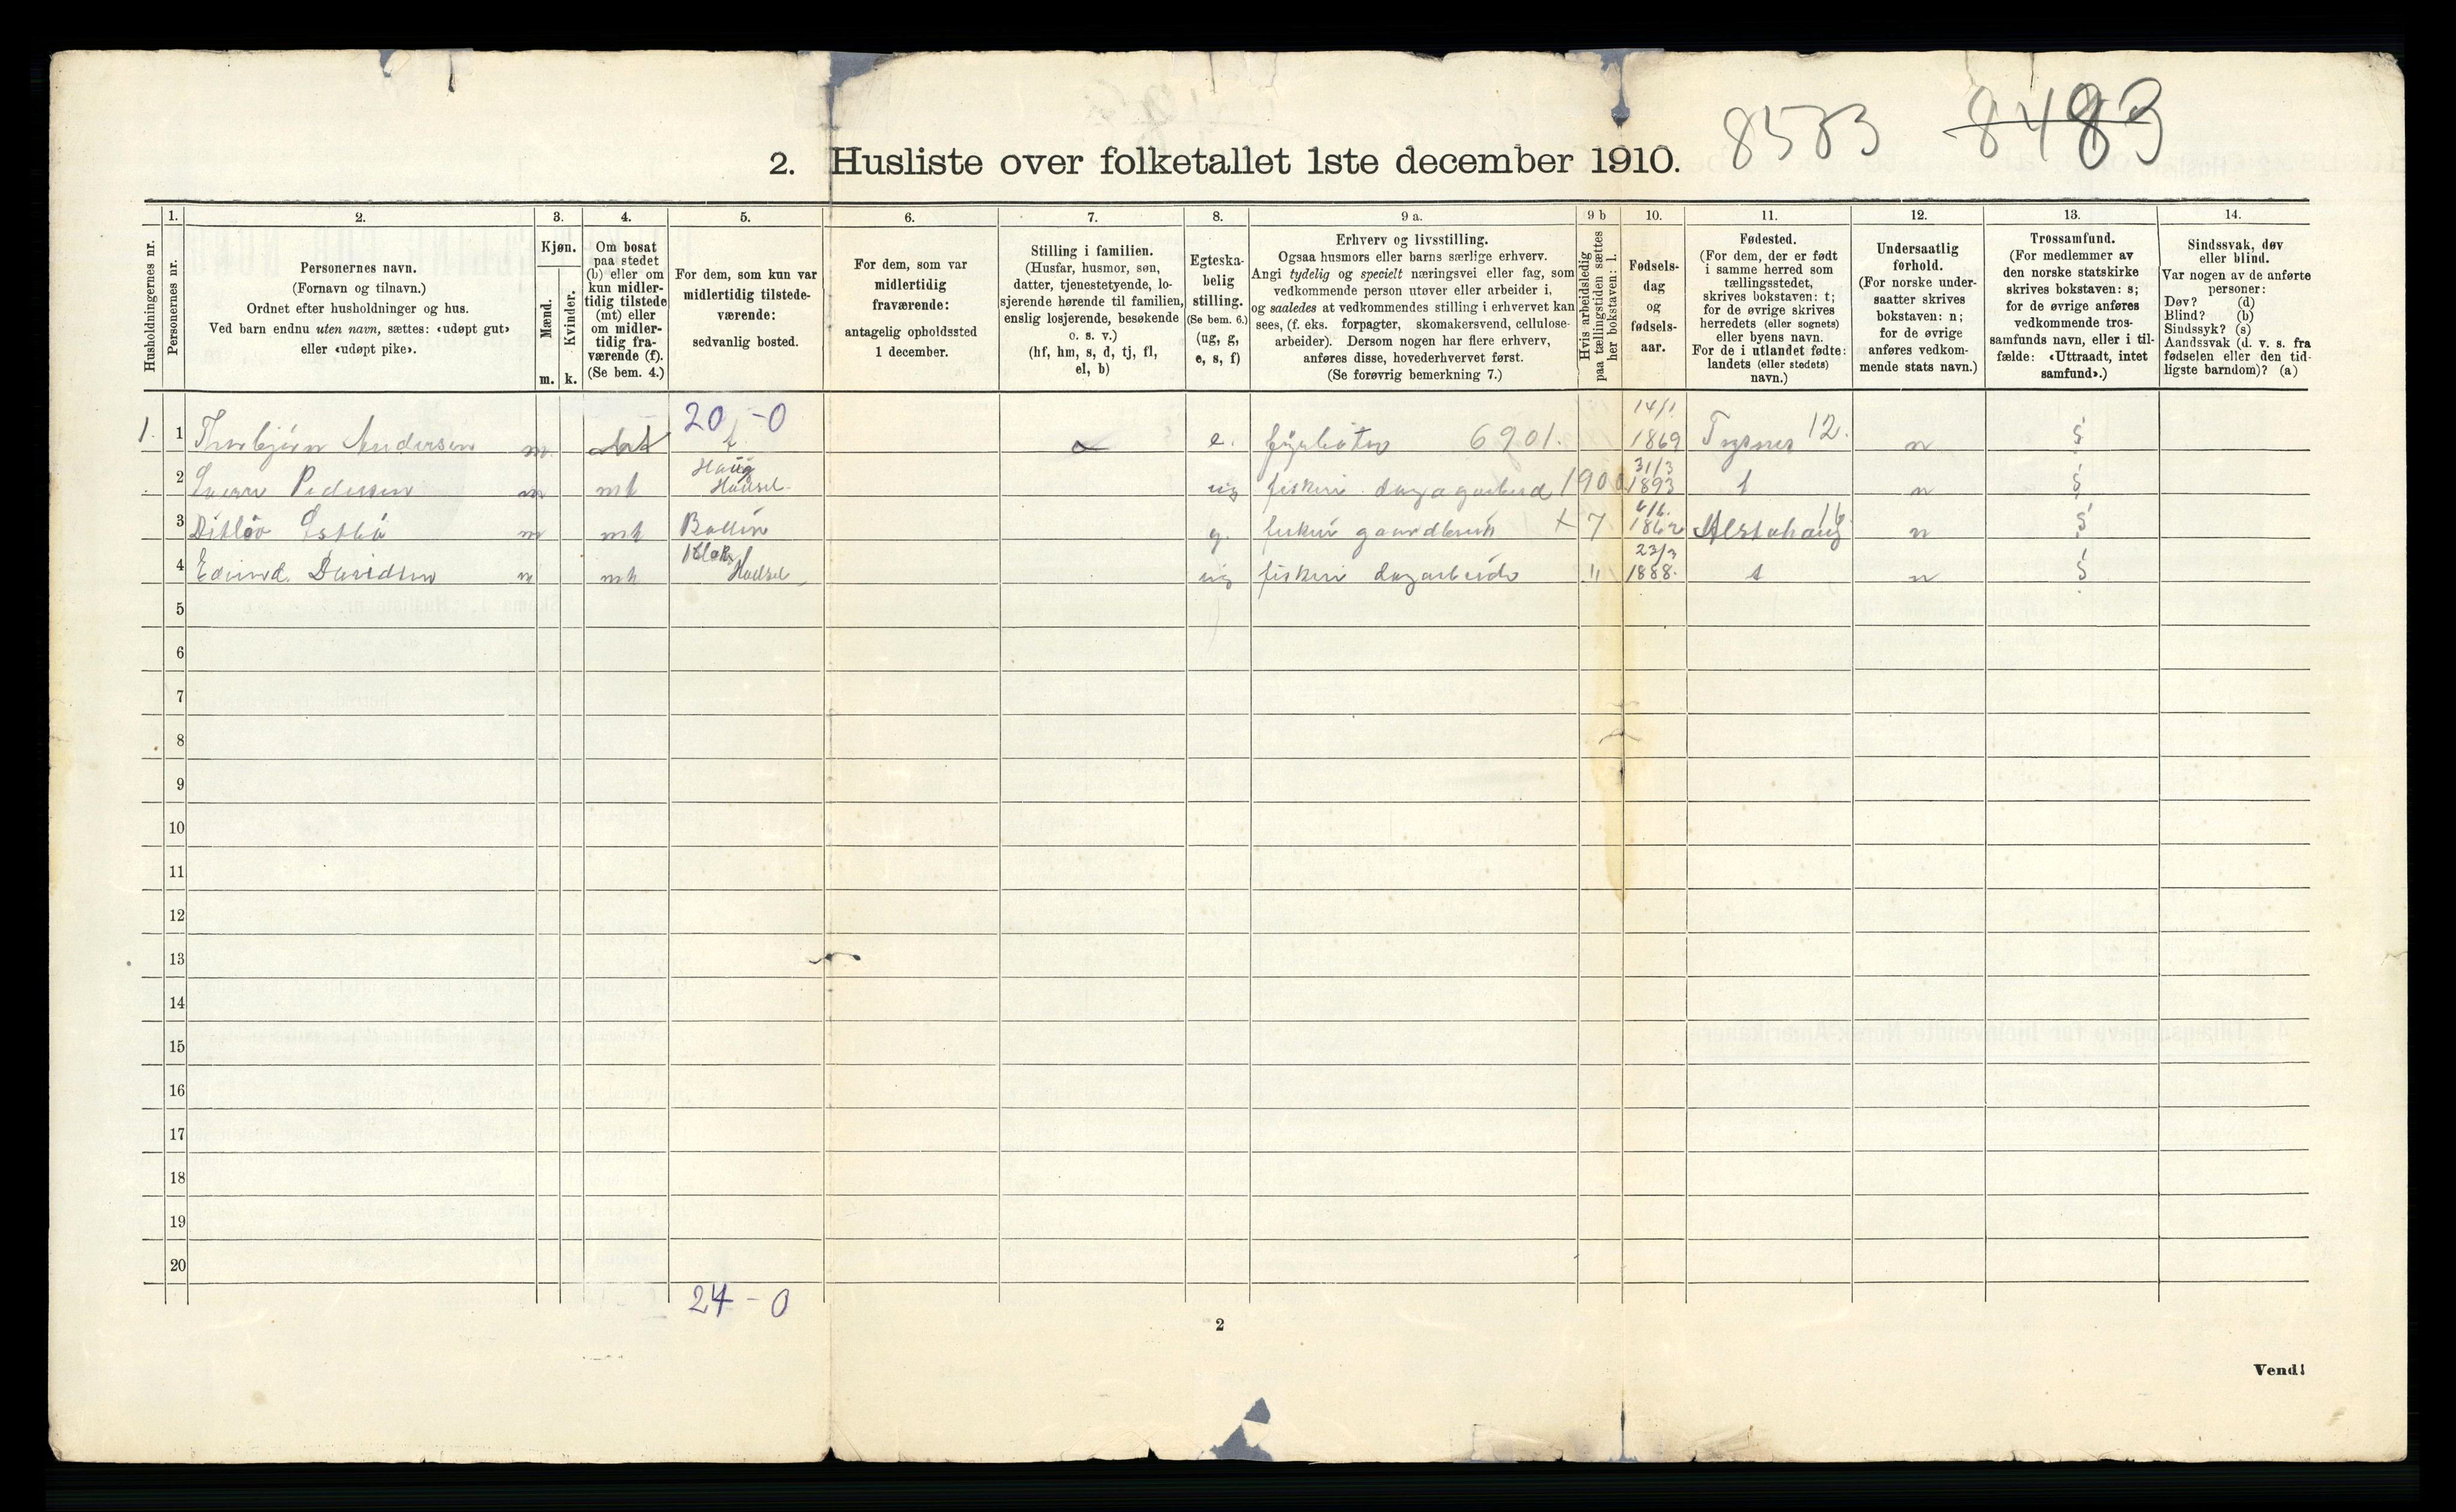 8583 8483
2. Husliste over folketallet 1ste december 1910.
1. 2. 3. 4. 5. 6. 7. 8. 9 a. 9 b 10. 11. 12. 13. 14.
Husholdningernes nr.
Personernes nr.
Personernes navn.
(Fornavn og tilnavn.)
Ordnet efter husholdninger og hus.
Ved barn endnu uten navn, sættes: «udøpt gut»
eller «udøpt pike».
Kjøn.
Mænd.
Kvinder.
m. k.
Om bosat
paa stedet
(b) eller om
kun midler-
tidig tilstede
(mt) eller
om midler-
tidig fra-
værende (f).
(Se bem. 4.)
For dem, som kun var
midlertidig tilstede-
værende:
sedvanlig bosted.
For dem, som var
midlertidig
fraværende:
antagelig opholdssted
1 december.
Stilling i familien.
(Husfar, husmor, søn,
datter, tjenestetyende, lo-
sjerende hørende til familien,
enslig losjerende, besøkende
o. s. v.)
(hf, hm, s, d, tj, fl,
el, b)
Egteska-
belig
stilling.
(Se bem. 6.)
(ug, g,
e, s, f)
Erhverv og livsstilling.
Ogsaa husmors eller barns særlige erhverv.
Angi tydelig og specielt næringsvei eller fag, som
vedkommende person utøver eller arbeider i,
og saaledes at vedkommendes stilling i erhvervet kan
sees, (f. eks. forpagter, skomakersvend, cellulose-
arbeider). Dersom nogen har flere erhverv,
anføres disse, hovederhvervet først.
(Se forøvrig bemerkning 7.)
Hvis arbeidsledig
paa tællingstiden sættes
her bokstaven: l.
Fødsels-
dag
og
fødsels-
aar.
Fødested.
(For dem, der er født
i samme herred som
tællingsstedet,
skrives bokstaven: t;
for de øvrige skrives
herredets (eller sognets)
eller byens navn.
For de i utlandet fødte:
landets (eller stedets)
navn.)
Undersaatlig
forhold.
(For norske under-
saatter skrives
bokstaven: n;
for de øvrige
anføres vedkom-
mende stats navn.)
Trossamfund.
(For medlemmer av
den norske statskirke
skrives bokstaven: s;
for de øvrige anføres
vedkommende tros-
samfunds navn, eller i til-
fælde: «Uttraadt, intet
samfund».)
Sindssvak, døv
eller blind.
Var nogen av de anførte
personer:
Døv? (d)
Blind? (b)
Sindssyk? (s)
Aandssvak (d. v. s. fra
fødselen eller den tid-
ligste barndom)? (a)
20 - 0
1. 1 Thorbjörn Andersen m. e. 6901. 14/1. 1869 Tysnes 12. n s
2 Pedersen m mt Haug Hadsel. ug fiskeri 1900 31/3 1893 t n s
3 Ditløv m mt Ballen g. 7 1862 Alstahaug n s
4 Edvind. Davidsen m mt Hadsel ug fiskeri dagarbeide " 23/3 1888. t n s
5
6
7
8
9
10
11
12
13
14
15
16
17
18
19
20
24 - 0
2
Vend!